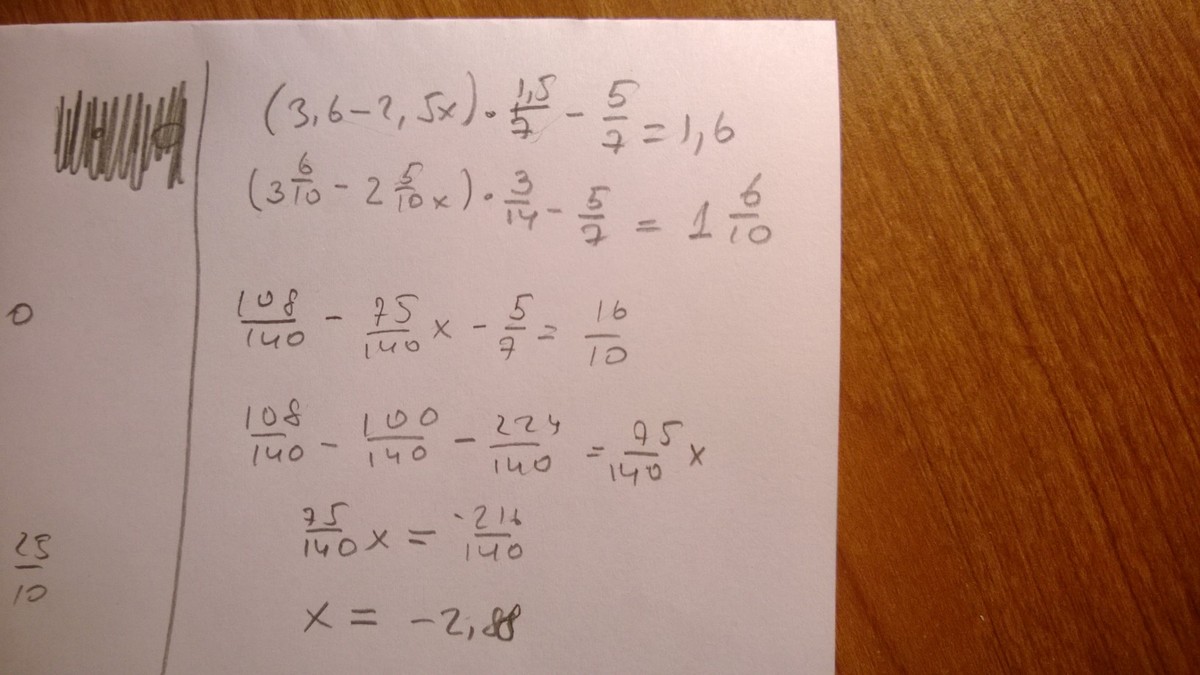 (3,6-2,5x)·1,5/7 - 5/7 = 1,6
(3 6/10 - 2 5/10 x)·3/14 - 5/7 = 1 6/10
0
108/140 - 75/140 x - 5/7 = 16/10
108/140 - 100/140 - 224/140 = 75/140 x
75/140 x = -216/140
25/10
x = -2,88